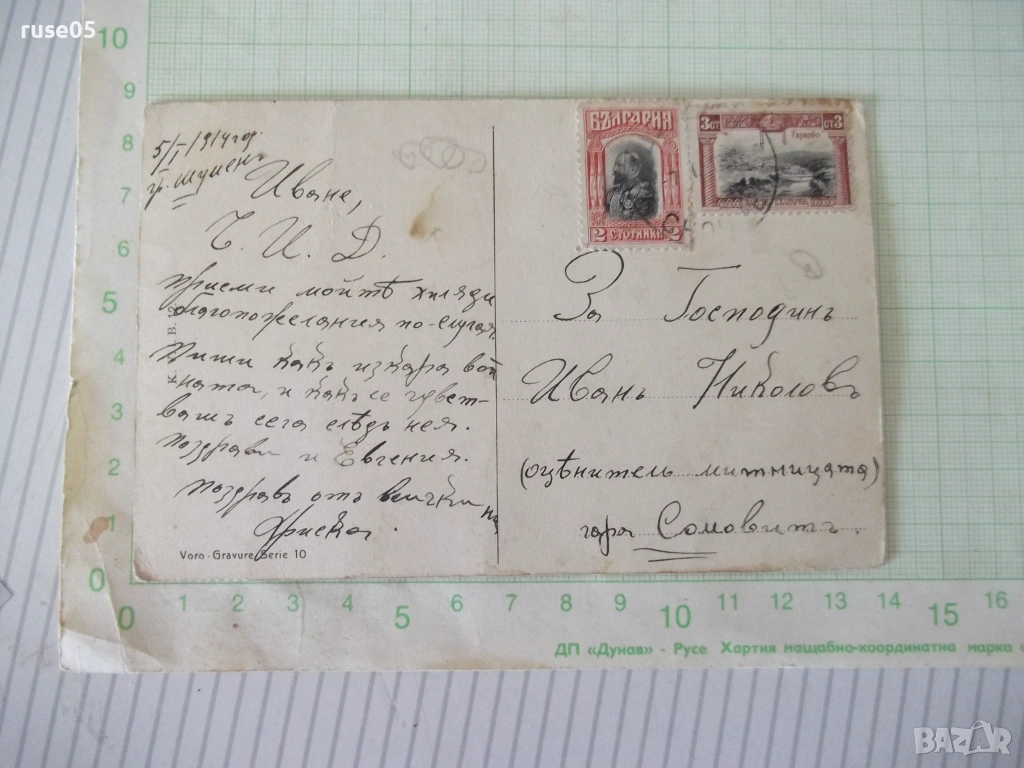 ruse05
10
9
8
7
6
5
4
3
2
1
0
5/I 1914 год.
гр. Шуменъ
Иване,
Ч. И. Д.
Приеми мойтѣ хиляди
благопожелания по-случая.
Пиши какъ изкара вой
ната, и какъ се чувст-
вашъ сега слѣдъ нея.
Поздрави и Евгения.
Поздравъ отъ всички ни
Voro-Gravure Serie 10
БЪЛГАРИЯ
2 СТОТИНКИ 2
3 СТ
СТ 3
Търново
БЪЛГАРИЯ
За Господинъ
Иванъ Николовъ
(оцѣнитель митницата)
гара Сомовитъ
0 1 2 3 4 5 6 7 8 9 10 11 12 13 14 15 16
ДП «Дунав» - Русе Хартия мащабно-координатна марка
BAZAR